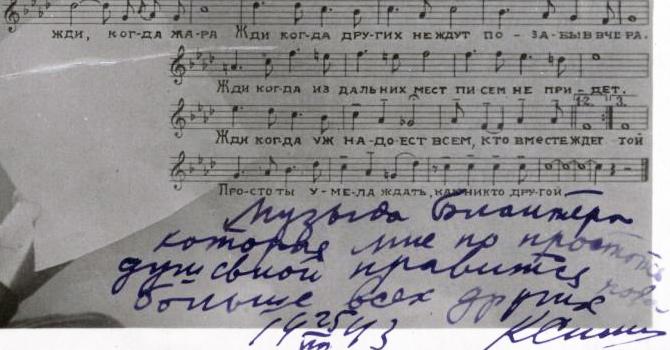 ЖДИ, КОГ-ДА ЖА-РА ЖДИ КОГ-ДА ДРУ-ГИХ НЕ ЖДУТ ПО - ЗА-БЫВ ВЧЕ-РА.
ЖДИ КОГ-ДА ИЗ ДАЛЬНИХ МЕСТ ПИ СЕМ НЕ ПРИ-ДЕТ.
1.2. 3.
ЖДИ КОГ-ДА УЖ НА-ДО-ЕСТ ВСЕМ, КТО ВМЕСТЕ ЖДЕТ ТОЙ
ПРО-СТО ТЫ У-МЕ-ЛА ЖДАТЬ, КАК НИКТО ДРУ-ГОЙ
Музыка Блантера
которая мне по простоте
душевной нравится
больше всех других
1943
КСим